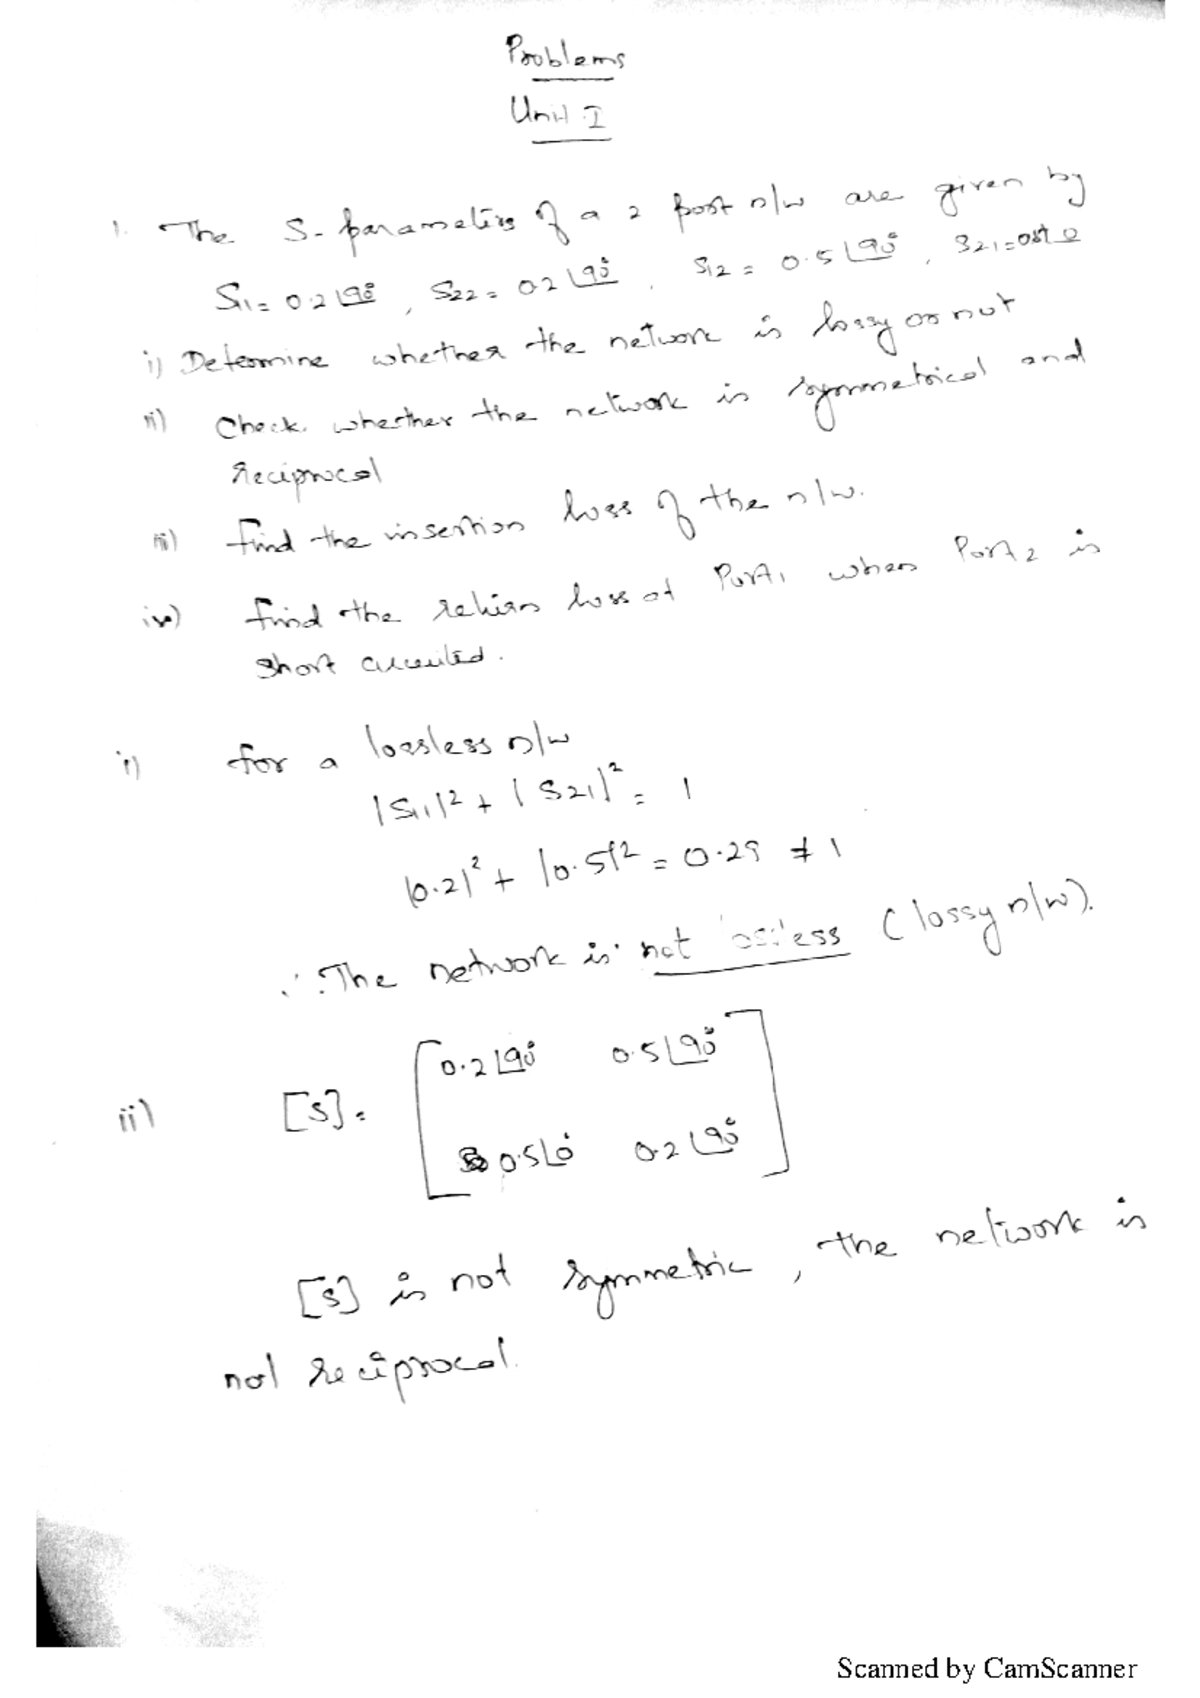 Problems
Unit I
1. The S-parameters of a 2 port n/w are given by
S11 = 0.2∠90°, S22 = 0.2∠90°, S12 = 0.5∠90°, S21 =
i) Determine whether the network is lossy or not
ii) Check whether the network is symmetrical and
reciprocal
iii) Find the insertion loss of the n/w.
iv) find the return loss at Port1 when Port2 is
short circuited.
i) for a lossless n/w
|S11|² + |S21|² = 1
|0.2|² + |0.5|² = 0.29 ≠ 1
∴ The network is not lossless (lossy n/w).
ii) [S] = [ 0.2∠90° 0.5∠90°
0.5∠0° 0.2∠90° ]
[S] is not symmetric, the network is
not reciprocal.
Scanned by CamScanner